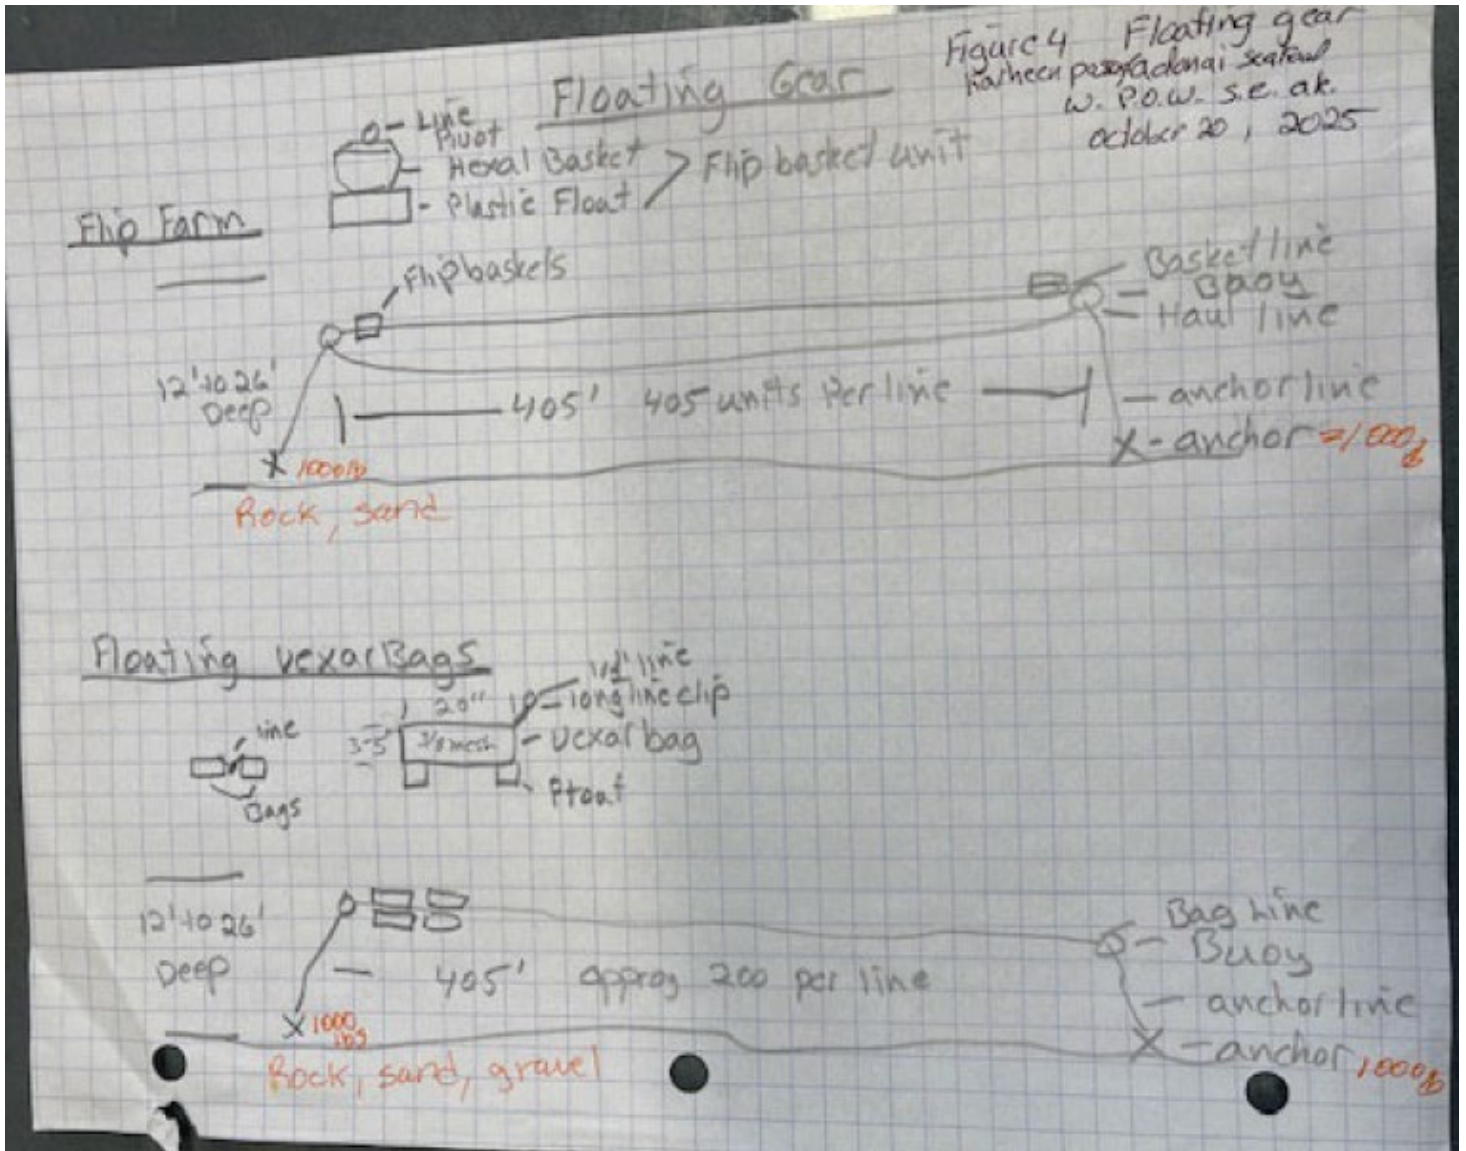 Figure 4 Floating gear
Karheen pass/Adonai seafood
w. P.O.W. s.e. ak.
october 20, 2025
Floating Gear
Line
Pivot
Hexal Basket
Plastic Float
Flip basket unit
Flip Farm
Flip baskets
Basket line
Buoy
Haul line
12' to 26'
Deep
405' 405 units Per line
- anchor line
X - anchor = 1000
X 1000 lb
Rock, sand
Floating vexar Bags
line
Bags
20"
3-5"
mesh
line
- longline clip
- vexar bag
Float
12' to 26'
Deep
405' approx 200 per line
Bag Line
- Buoy
- anchor line
X - anchor 1000
X 1000
lbs
Rock, sand, gravel